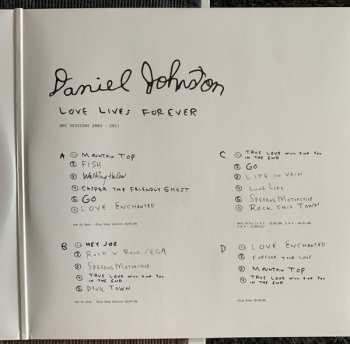 Daniel Johnston
LOVE LIVES FOREVER
BBC SESSIONS 2003 - 2011
A ① MOUNTAIN TOP
② FISH
③ Walking the Cow
④ CASPER THE FRIENDLY GHOST
⑤ GO
⑥ LOVE ENCHANTED
B ① HEY JOE
② ROCK N ROLL / EGA
③ SPEEDING MOTORCYCLE
④ TRUE LOVE WILL FIND YOU
IN THE END
⑤ DEVIL TOWN
C ① TRUE LOVE WILL FIND YOU
IN THE END
② GO
③ LIFE IN VAIN
④ LOVE LIFE
⑤ SPEEDING MOTORCYCLE
⑥ ROCK THIS TOWN
D ① LOVE ENCHANTED
② FOREVER YOUR LOVE
③ MOUNTAIN TOP
④ TRUE LOVE WILL FIND YOU
IN THE END